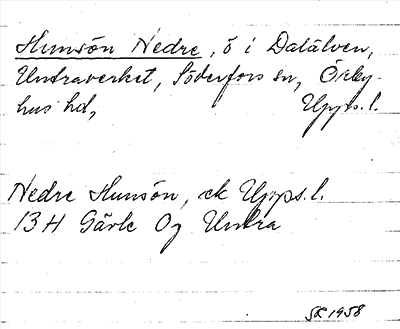 Hunsön Nedre, ö i Dalälven,
Untraverket, Söderfors sn, Örby-
hus hd, Upps.l.
Nedre Hunsön, ek Upps.l.
13H Gävle Og Untra
SR 1958